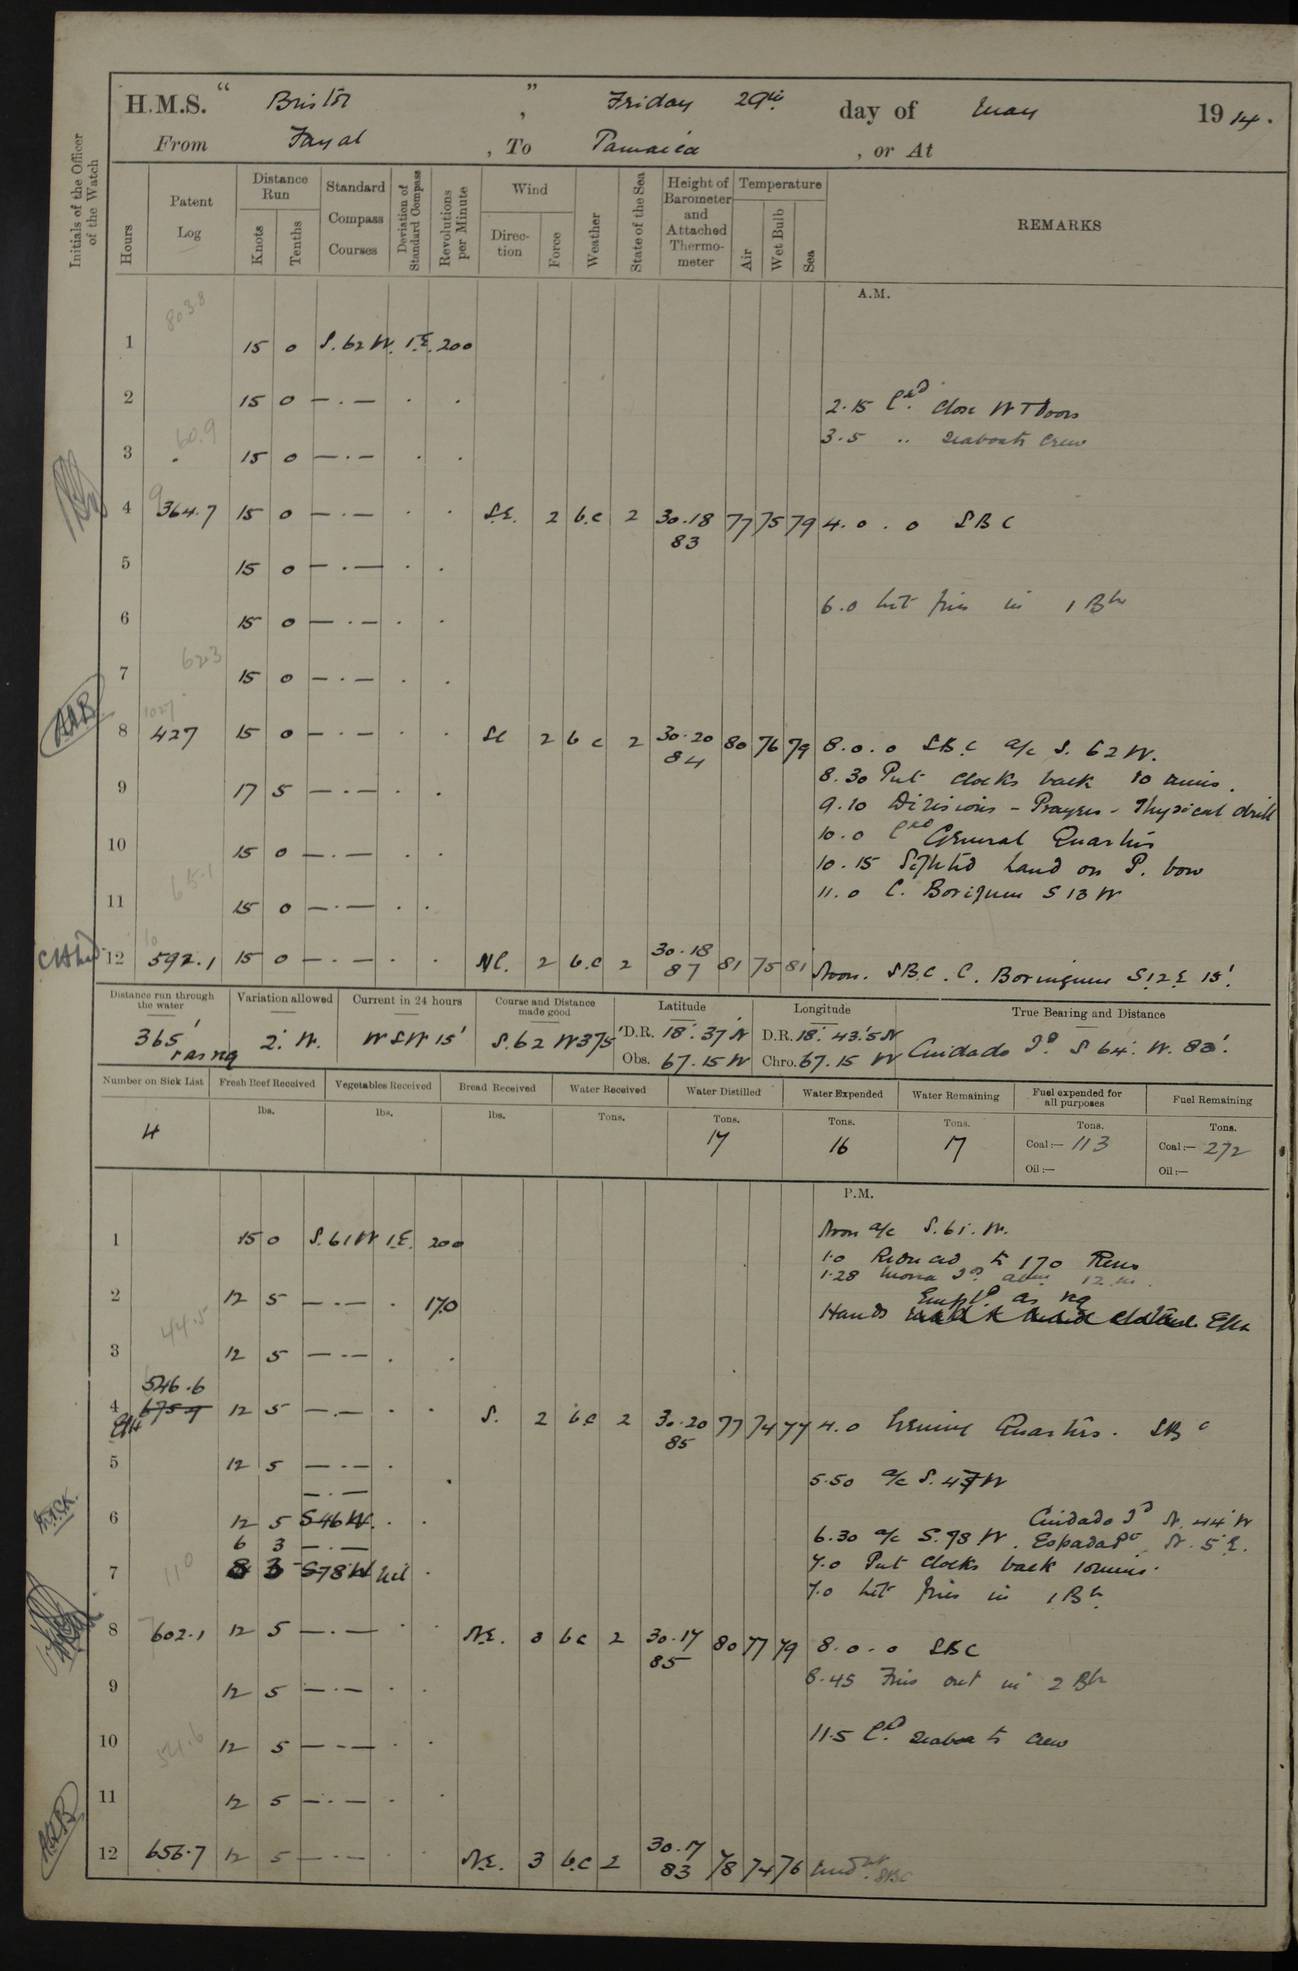 H.M.S. "Bristol", Friday 29th day of May 1914.
From Fayal, To Jamaica, or At
Initials of the Officer of the Watch
Hours
Patent Log
Distance Run
Knots
Tenths
Standard Compass Courses
Deviation of Standard Compass
Revolutions per Minute
Wind
Direction
Force
Weather
State of the Sea
Height of Barometer and Attached Thermometer
Temperature
Air
Wet Bulb
Sea
REMARKS
A.M.
803.8
1 15 0 S. 62 W. 1.E. 200
2 15 0 — . — . .
2.15 Exd. Close W T Doors
60.9
3.5 .. Seaboats Crew
3 15 0 — . — . .
4 9364.7 15 0 — . — . . S.E. 2 b.c 2 30.18 83 77 75 79 4.0 . 0 S B C
5 15 0 — . — . .
6.0 Lit fires in 1 Blr
6 15 0 — . — . .
62.3
7 15 0 — . — . .
8 427 15 0 — . — . . SE 2 b c 2 30.20 84 80 76 79 8.0 . 0 S.B.C a/c S. 62 W.
8.30 Put clocks back 10 mins.
9 17 5 — . — . .
9.10 Divisions - Prayers - Physical drill
10.0 Exd General Quarters
10 15 0 — . — . .
10.15 Sighted Land on P. bow
65.1
11.0 C. Borinquen S 13 W
11 15 0 — . — . .
12 592.1 15 0 — . — . . NE. 2 b.c 2 30.18 87 81 75 81 Noon. S.B.C. C. Borinquen S.12.E 15'
Distance run through the water
365'
Variation allowed
2. W.
Current in 24 hours
W S W 15'
Course and Distance made good
S.62 W 375
Latitude
D.R. 18°. 37' N
Obs. 67.15 W
Longitude
D.R. 18°. 43.'5 N
Chro. 67.15 W
True Bearing and Distance
Cuidado Id. S 64°. W. 83'.
Number on Sick List
4
Fresh Beef Received
lbs.
Vegetables Received
lbs.
Bread Received
lbs.
Water Received
Tons.
Water Distilled
Tons.
17
Water Expended
Tons.
16
Water Remaining
Tons.
17
Fuel expended for all purposes
Tons.
Coal:— 113
Oil:—
Fuel Remaining
Tons.
Coal:— 272
Oil:—
P.M.
Noon a/c S. 61. W.
1 15 0 S. 61 W 1.E. 200
1.0 Reduced to 170 Revs
1.28 Mona Id. abm 12 m.
2 12 5 — . — . 170
Empld. as req
Hands
44.5
3 12 5 — . — . .
546.6
4 675.7 12 5 — . — . . S. 2 b c 2 30.20 85 77 74 77 4.0 Evening Quarters. S B C
5 12 5 — . — . .
5.50 a/c S. 47 W
— . —
Cuidado Id N. 44 W
6 12 5 S 46 W. . .
6.30 a/c S. 78 W. Espada Pt. N. 5 E.
6 3 — . —
7.0 Put Clocks back 10 mins.
7 8 3 S 78 W Nil .
110
7.0 Lit fires in 1 Blr.
8 602.1 12 5 — . — . . N.E. 3 b c 2 30.17 85 80 77 79 8.0 . 0 S B C
8.45 Fires out in 2 Blr
9 12 5 — . — . .
10 12 5 — . — . .
11.5 Exd. Seaboats Crew
11 12 5 — . — . .
12 656.7 12 5 — . — . . N.E. 3 b.c 2 30.17 83 78 74 76 Midnt. SBC